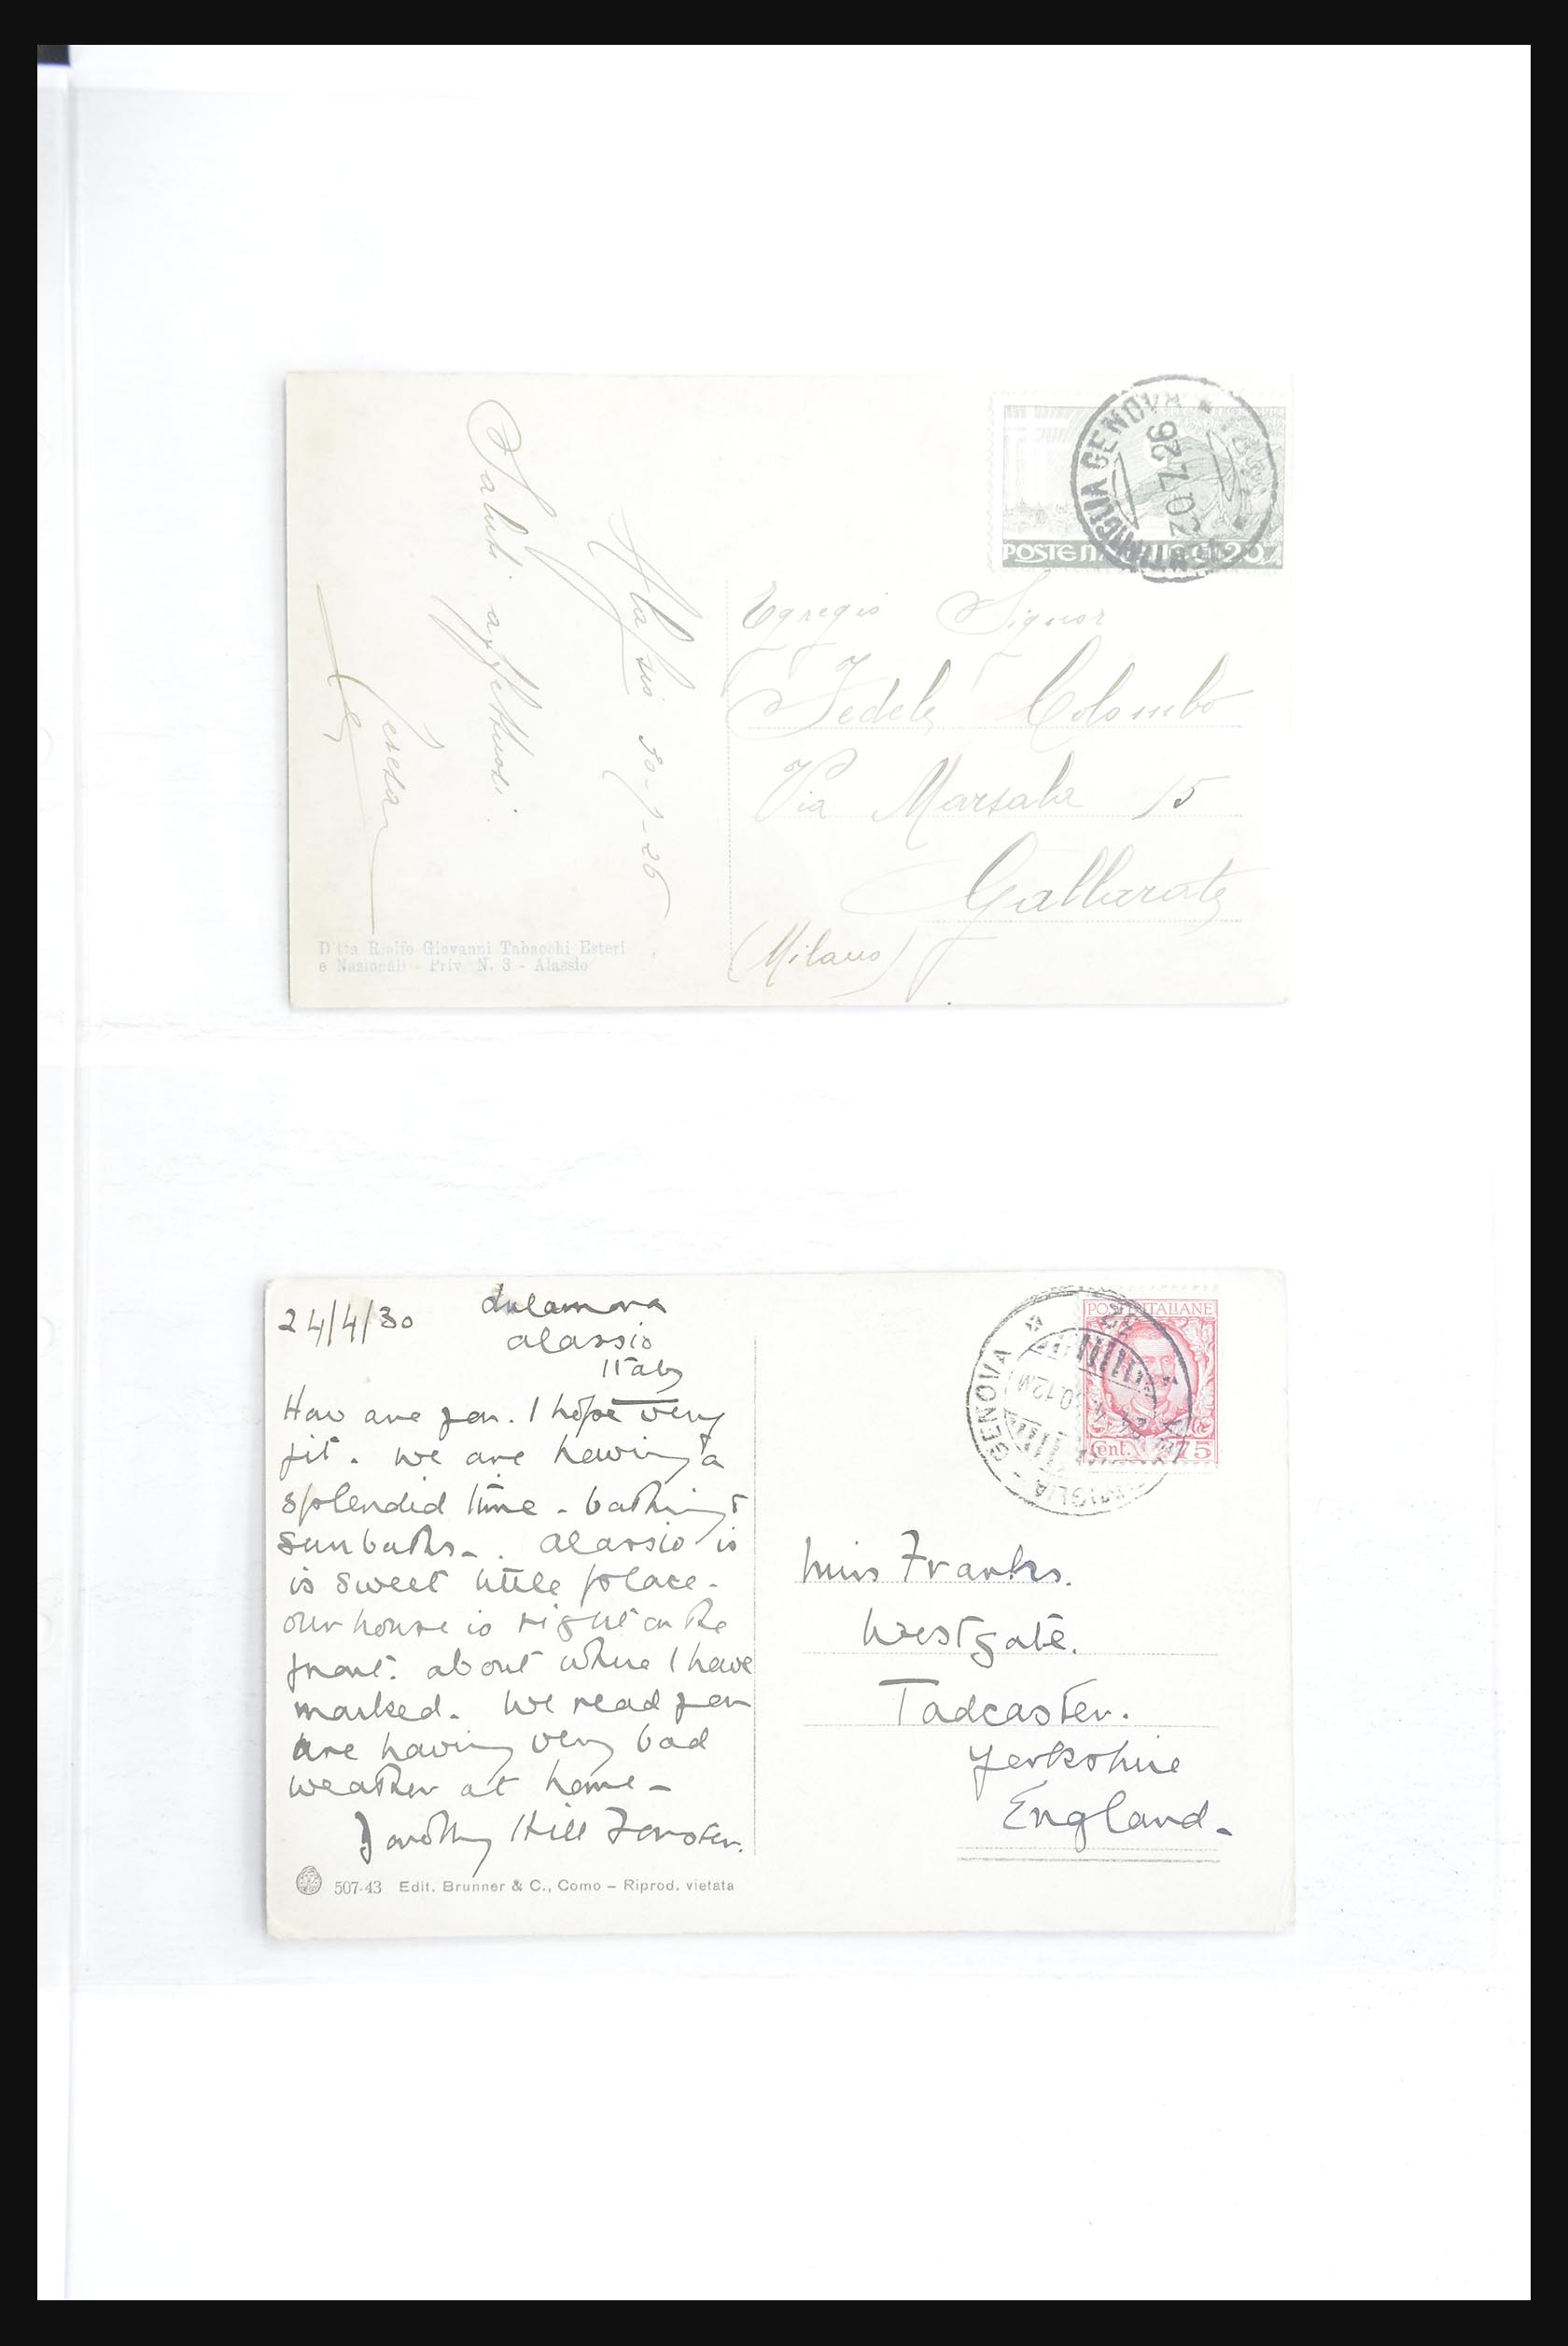 POSTE ITALIANE C. 20
GENOVA
20 7 26
Saluti affettuosi
Alassio 20-7-26
Cesira
Egregio Signor
Fedele Colombo
Via Marsala 15
Gallarate
(Milano)
Ditta Riolfo Giovanni Tabacchi Esteri
e Nazionali - Priv. N. 3 - Alassio
24/4/30
Alassio
Italy
How are you. I hope very
fit. We are having a
splendid time - bathing &
sunbaths. Alassio is
is sweet little place.
our house is right on the
front. about where I have
marked. We read you
are having very bad
weather at home -
Dorothy Hill Forster.
507-43 Edit. Brunner & C., Como – Riprod. vietata
POSTE ITALIANE
Cent. 75
GENOVA
Miss Franks.
Westgate.
Tadcaster.
Yorkshire
England.